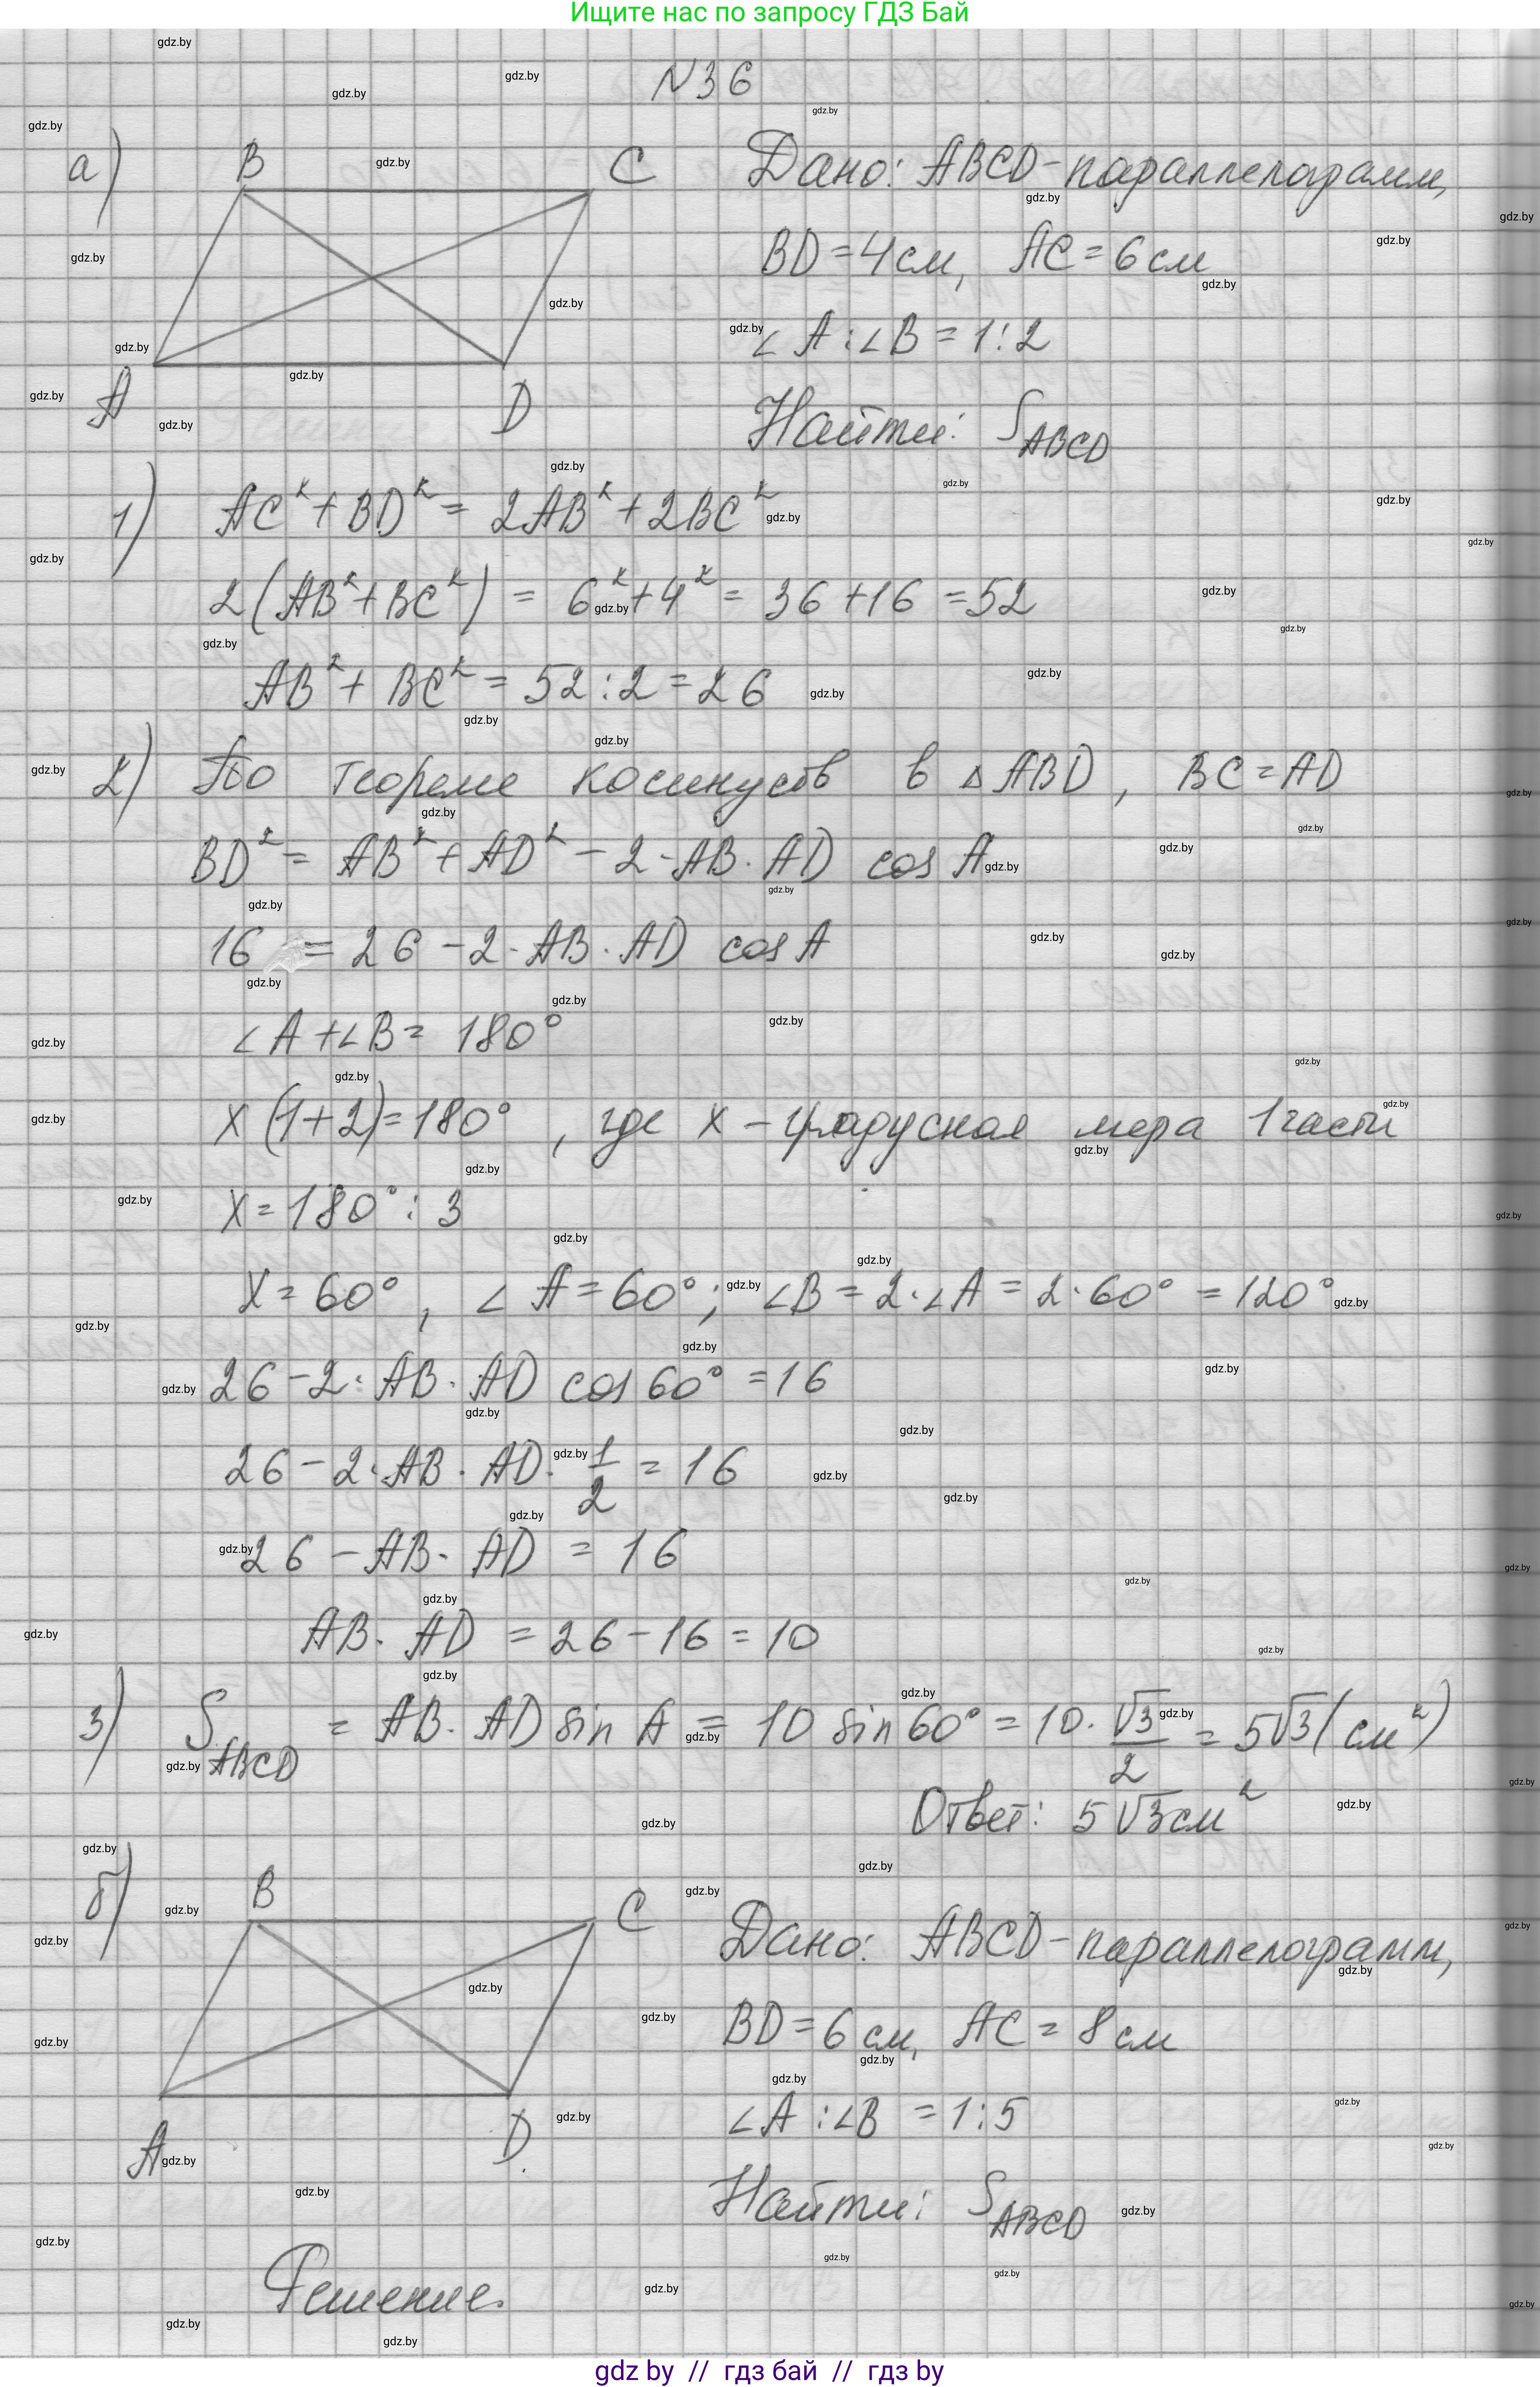 Ищите нас по запросу ГДЗ Бай
N36
а)
B
C
A
D
Дано: ABCD-параллелограмм,
BD = 4см, AC = 6см
∠A:∠B = 1:2
Найти: S_ABCD
1) AC² + BD² = 2AB² + 2BC²
2(AB² + BC²) = 6² + 4² = 36 + 16 = 52
AB² + BC² = 52:2 = 26
2) По теореме косинусов в △ABD, BC = AD
BD² = AB² + AD² - 2·AB·AD cos A
16 = 26 - 2·AB·AD cos A
∠A + ∠B = 180°
x(1+2) = 180°, где x - градусная мера 1 части
x = 180° : 3
x = 60°, ∠A = 60°; ∠B = 2·∠A = 2·60° = 120°
26 - 2·AB·AD cos 60° = 16
26 - 2·AB·AD·1/2 = 16
26 - AB·AD = 16
AB·AD = 26 - 16 = 10
3) S_ABCD = AB·AD sin A = 10 sin 60° = 10·√3/2 = 5√3 (см²)
Ответ: 5√3 см²
б)
B
C
A
D
Дано: ABCD-параллелограмм,
BD = 6 см, AC = 8 см
∠A:∠B = 1:5
Найти: S_ABCD
Решение.
gdz by // гдз бай // гдз by